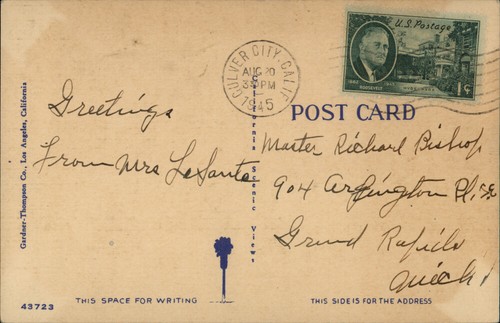 CULVER CITY, CALIF.
AUG 20
3 PM
1945
U.S. Postage
ROOSEVELT
HYDE PARK
1¢
POST CARD
Greetings
From Mrs LeSante
Master Richard Bishop
904 Arlington Pl. SE
Grand Rapids
Mich
Gardner-Thompson Co., Los Angeles, California
California Scenic Views
43723
THIS SPACE FOR WRITING
THIS SIDE IS FOR THE ADDRESS